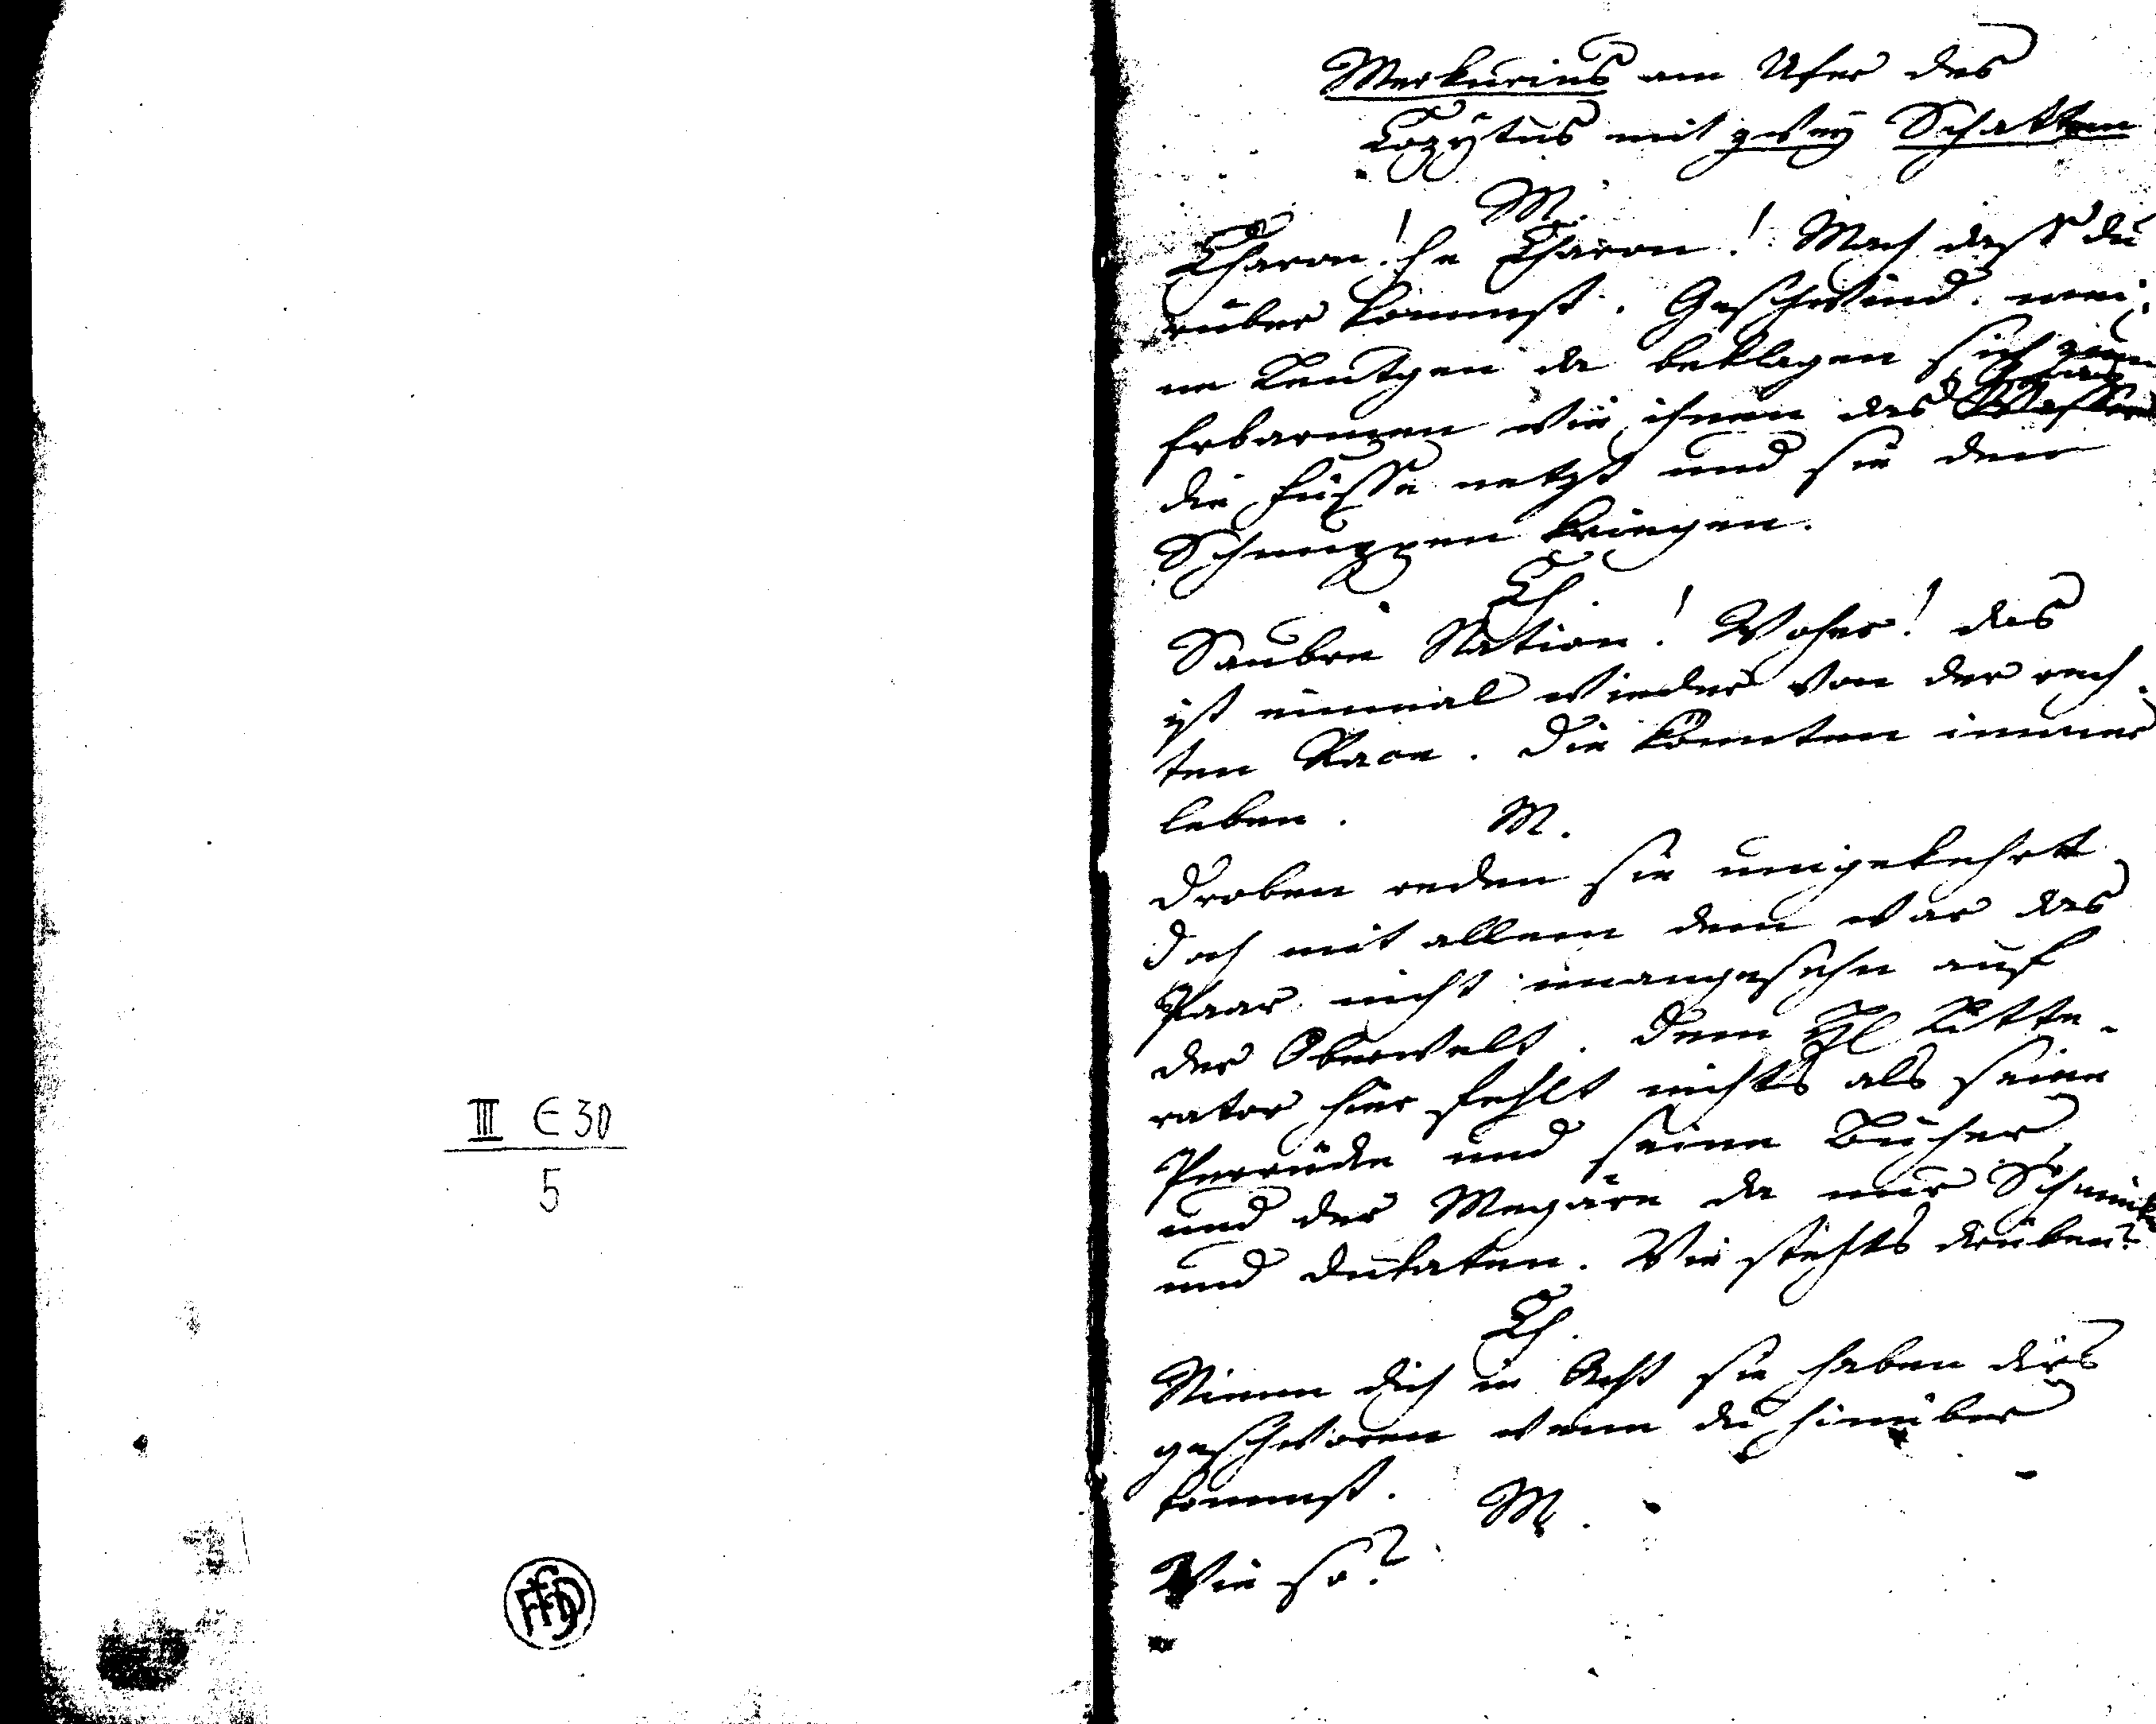 III E 30
5
Merkurius am Ufer des
Cozytus mit zwey Schatten
M.
Charon! he Charon! Mach dass du
rüber kommst. Geschwind. mei-
ne Leutgen da beklagen sich zum
Erbarmen wie ihnen das Gras
die Füsse netzt und sie den
Schnuppen kriegen.
Ch.
Saubre Nation! Woher! das
ist einmal wieder von der rech-
ten Race. Die könnten immer
leben.
M.
Droben reden sie umgekehrt
Doch mit allem dem war das
Paar nicht unangesehn auf
der Oberwelt. Dem Hl Litte-
rator hier fehlt nichts als seine
Perrücke und seine Bücher
und der Megäre da nur Schminke
und Dukaten. Wie stehts drüben?
Ch.
Nimm dich in Acht sie haben dirs
geschworen wenn du hinüber
kommst.
M.
Wie so?